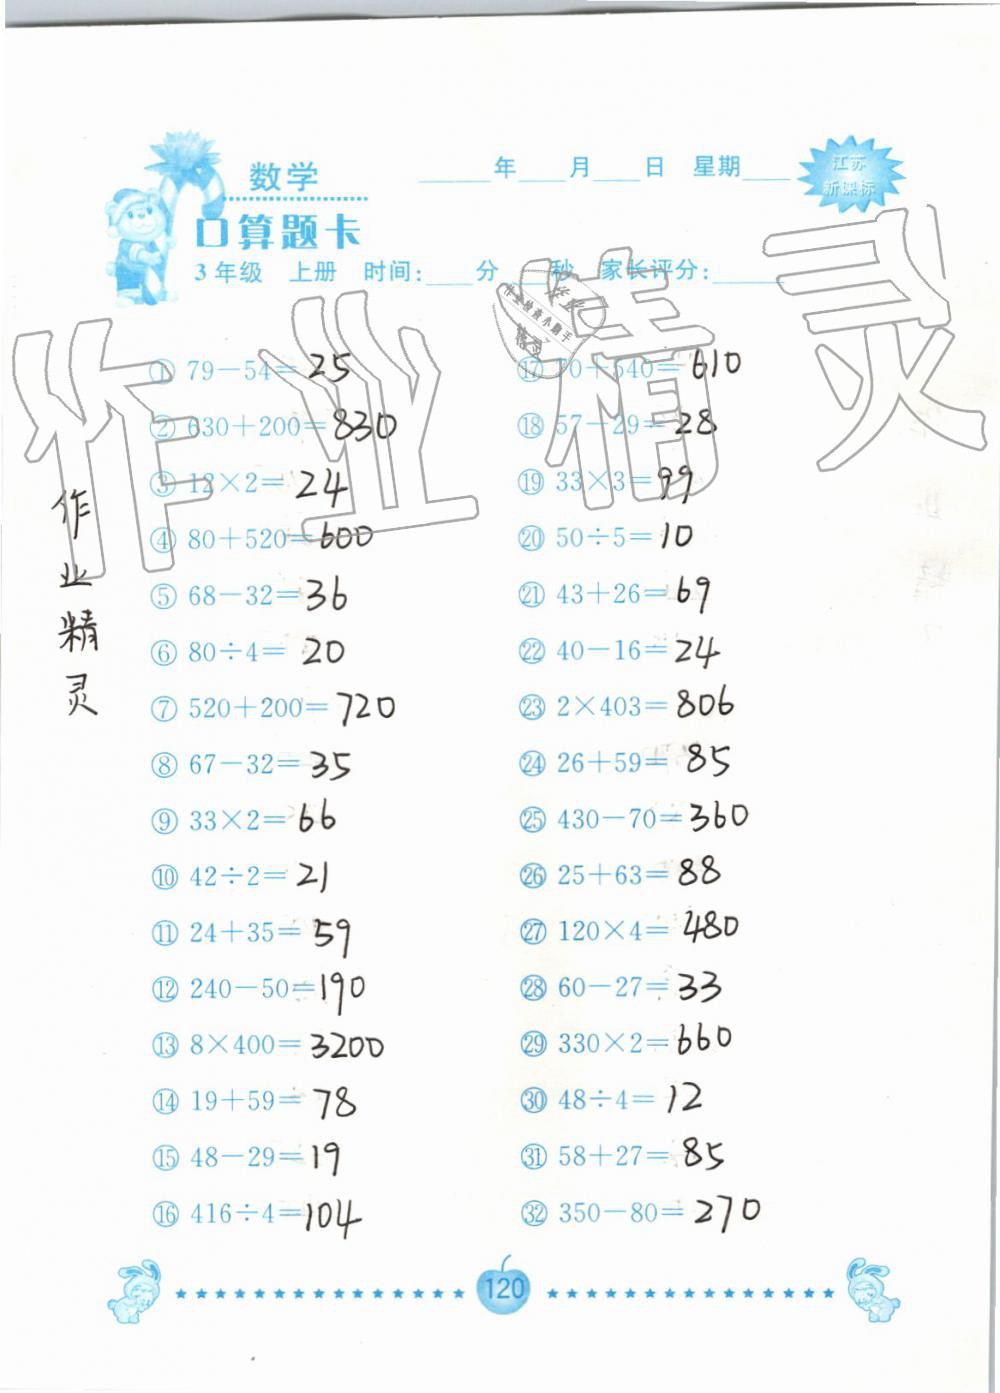 数学
____年____月____日 星期____
江苏
新课标
口算题卡
3年级 上册 时间:____分____秒 家长评分:____
作业精灵
作业
作业检查小助手
精灵
① 79－54＝25
② 630＋200＝830
③ 12×2＝24
④ 80＋520＝600
⑤ 68－32＝36
⑥ 80÷4＝20
⑦ 520＋200＝720
⑧ 67－32＝35
⑨ 33×2＝66
⑩ 42÷2＝21
⑪ 24＋35＝59
⑫ 240－50＝190
⑬ 8×400＝3200
⑭ 19＋59＝78
⑮ 48－29＝19
⑯ 416÷4＝104
⑰ 70＋540＝610
⑱ 57－29＝28
⑲ 33×3＝99
⑳ 50÷5＝10
㉑ 43＋26＝69
㉒ 40－16＝24
㉓ 2×403＝806
㉔ 26＋59＝85
㉕ 430－70＝360
㉖ 25＋63＝88
㉗ 120×4＝480
㉘ 60－27＝33
㉙ 330×2＝660
㉚ 48÷4＝12
㉛ 58＋27＝85
㉜ 350－80＝270
作业精灵
120